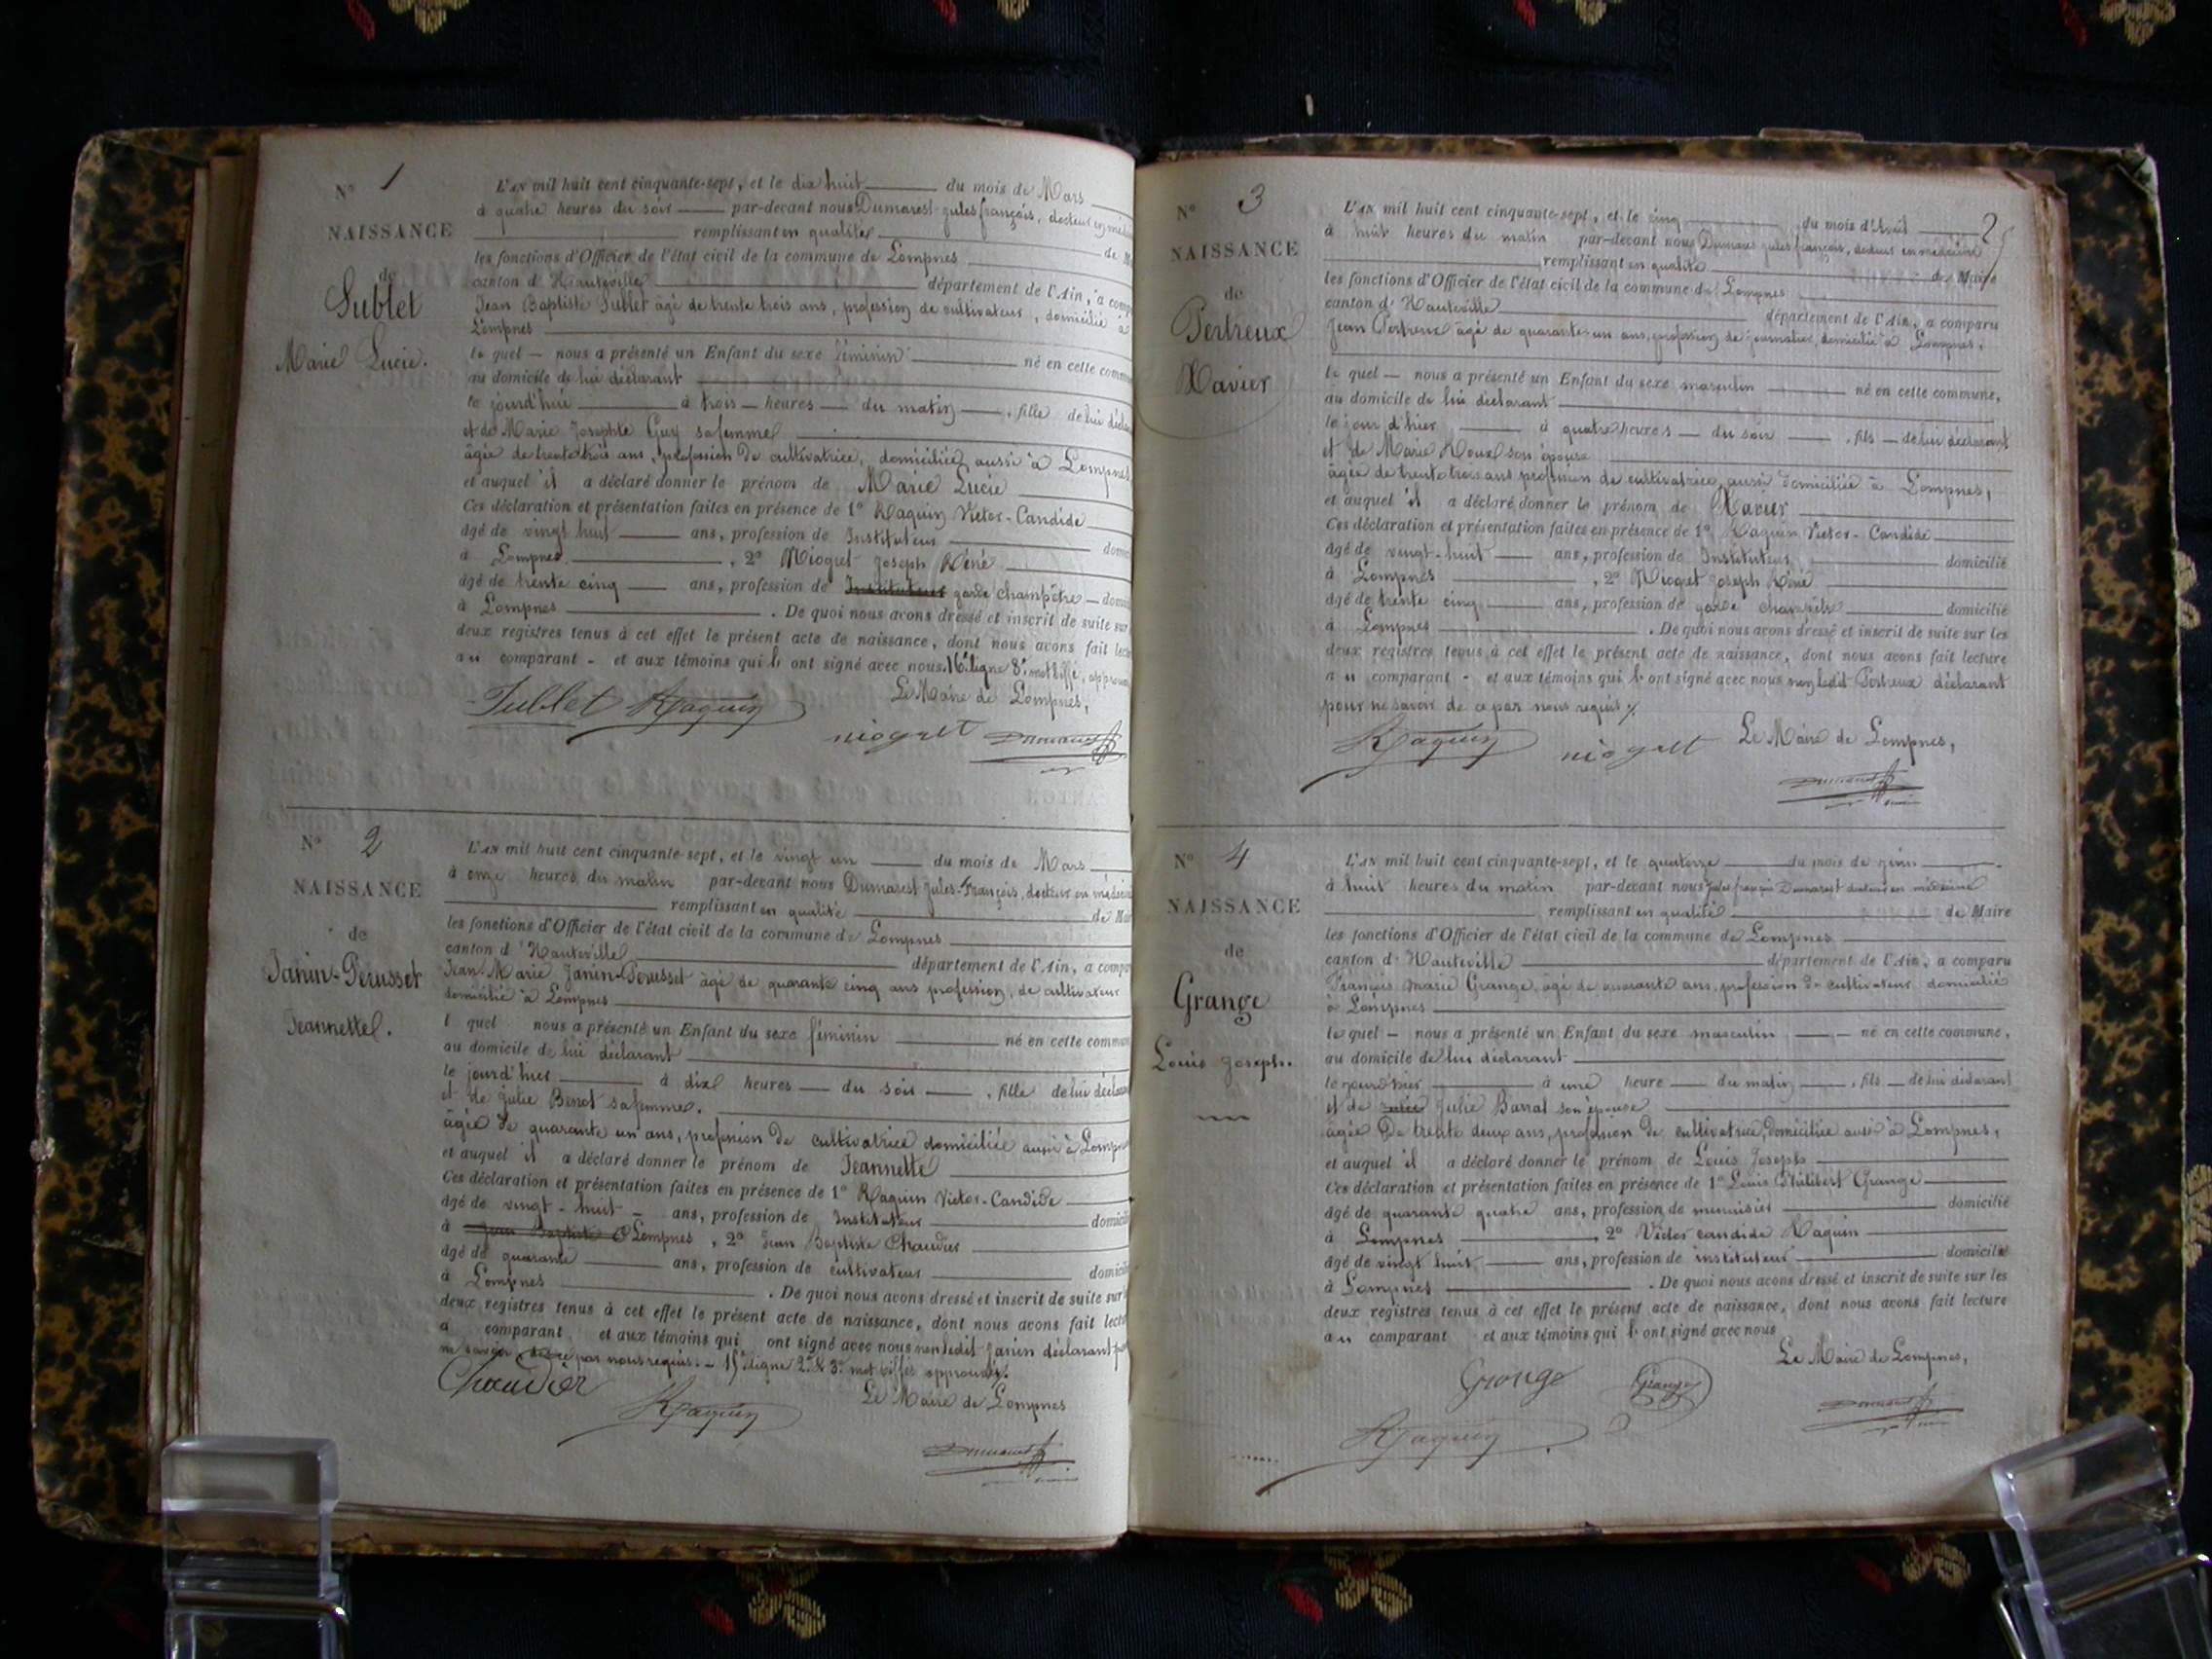 N° 1
NAISSANCE
de
Sublet
Marie Lucie.
L'AN mil huit cent cinquante-sept, et le dix huit du mois de Mars
à quatre heures du soir par-devant nous Dumarest jules françois, docteur en
remplissant en qualité
les fonctions d'Officier de l'état civil de la commune de Lompnes de
canton d'Hauteville département de l'Ain, a
Jean Baptiste Sublet âgé de trente trois ans, profession de cultivateur, domicilié à
Lompnes
le quel nous a présenté un Enfant du sexe féminin né en cette
au domicile de lui déclarant
le jourd'hui à trois heures du matin, fille de lui
et de Marie Josephte Guy sa femme
âgée de trente trois ans, profession de cultivatrice, domiciliée aussi à Lompnes
et auquel il a déclaré donner le prénom de Marie Lucie
Ces déclaration et présentation faites en présence de 1° Raquin Victor-Candide
âgé de vingt huit ans, profession de Instituteur
à Lompnes, 2° Niogret Joseph Réné
âgé de trente cinq ans, profession de Instituteur garde champêtre
à Lompnes. De quoi nous avons dressé et inscrit de suite sur
deux registres tenus à cet effet le présent acte de naissance, dont nous avons fait
au comparant - et aux témoins qui ont signé avec nous. 16e ligne 8e mot biffé,
Le Maire de Lompnes,
Sublet Raquin
niogret Dumarest
N° 2
NAISSANCE
de
Janin-Perusset
Jeannette.
L'AN mil huit cent cinquante-sept, et le vingt un du mois de Mars
à onze heures du matin par-devant nous Dumarest Jules-François, docteur en
remplissant en qualité de
les fonctions d'Officier de l'état civil de la commune de Lompnes
canton d'Hauteville département de l'Ain, a
Jean-Marie Janin-Perusset âgé de quarante cinq ans profession, de cultivateur
domicilié à Lompnes
l quel nous a présenté un Enfant du sexe féminin né en cette
au domicile de lui déclarant
le jourd'hier à dix heures du soir, fille de lui
et de Julie Benot sa femme.
âgée de quarante un ans, profession de cultivatrice domiciliée aussi à
et auquel il a déclaré donner le prénom de Jeannette
Ces déclaration et présentation faites en présence de 1° Raquin Victor-Candide
âgé de vingt-huit ans, profession de Instituteur
à Jean Baptiste Lompnes, 2° Jean Baptiste Chaudier
âgé de quarante ans, profession de cultivateur
à Lompnes. De quoi nous avons dressé et inscrit de suite sur
deux registres tenus à cet effet le présent acte de naissance, dont nous avons fait
a comparant et aux témoins qui ont signé avec nous non ledit Janin déclarant
ne savoir de ce par nous requis. - 15e ligne 2e & 3e mot biffés approuvés.
Chaudier Le Maire de Lompnes
Raquin
Dumarest
N° 3
NAISSANCE
de
Pertreux
Xavier
2
L'AN mil huit cent cinquante-sept, et le cinq du mois d'Avril
à huit heures du matin par-devant nous Dumarest jules françois, docteur en médecine
remplissant en qualité de Maire
les fonctions d'Officier de l'état civil de la commune de Lompnes
canton d'Hauteville département de l'Ain, a comparu
Jean Pertreux âgé de quarante-un ans, profession de journalier, domicilié à Lompnes,
le quel nous a présenté un Enfant du sexe masculin né en cette commune,
au domicile de lui déclarant
le jour d'hier à quatre heures du soir, fils de lui déclarant
et de Marie Roux son épouse
âgée de trente trois ans profession de cultivatrice, aussi domiciliée à Lompnes,
et auquel il a déclaré donner le prénom de Xavier
Ces déclaration et présentation faites en présence de 1° Raquin Victor-Candide
âgé de vingt-huit ans, profession de Instituteur domicilié
à Lompnes, 2° Niogret Joseph Réné
âgé de trente cinq ans, profession de garde champêtre domicilié
à Lompnes. De quoi nous avons dressé et inscrit de suite sur les
deux registres tenus à cet effet le présent acte de naissance, dont nous avons fait lecture
au comparant - et aux témoins qui ont signé avec nous non ledit Pertreux déclarant
pour ne savoir de ce par nous requis
Raquin niogret Le Maire de Lompnes,
Dumarest
N° 4
NAISSANCE
de
Grange
Louis Joseph.
L'AN mil huit cent cinquante-sept, et le quatorze du mois de juin
à huit heures du matin par-devant nous jules françois Dumarest docteur en médecine
remplissant en qualité de Maire
les fonctions d'Officier de l'état civil de la commune de Lompnes
canton d'Hauteville département de l'Ain, a comparu
François marie Grange, âgé de quarante ans, profession de cultivateur domicilié
à Lompnes
le quel nous a présenté un Enfant du sexe masculin né en cette commune,
au domicile de lui déclarant
le jourd'hier à une heure du matin, fils de lui déclarant
et de Julie Barral son épouse
âgée de trente deux ans, profession de cultivatrice, domiciliée aussi à Lompnes,
et auquel il a déclaré donner le prénom de Louis Joseph
Ces déclaration et présentation faites en présence de 1° Louis Philibert Grange
âgé de quarante quatre ans, profession de menuisier domicilié
à Lompnes, 2° Victor candide Raquin
âgé de vingt huit ans, profession de instituteur domicilié
à Lompnes. De quoi nous avons dressé et inscrit de suite sur les
deux registres tenus à cet effet le présent acte de naissance, dont nous avons fait lecture
au comparant et aux témoins qui ont signé avec nous
Le Maire de Lompnes,
Grange Grange
Dumarest
Raquin